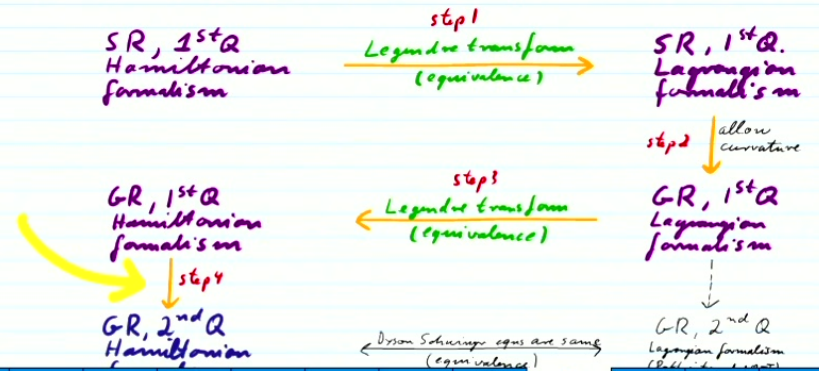 step1
SR, 1stQ
Hamiltonian
formalism
Legendre transform
(equivalence)
SR, 1stQ.
Lagrangian
formalism
step2
allow
curvature
step3
GR, 1stQ
Hamiltonian
formalism
Legendre transform
(equivalence)
GR, 1stQ
Lagrangian
formalism
step4
GR, 2ndQ
Hamiltonian
Dyson Schwinger eqns are same
(equivalence)
GR, 2nd Q
Lagrangian formalism